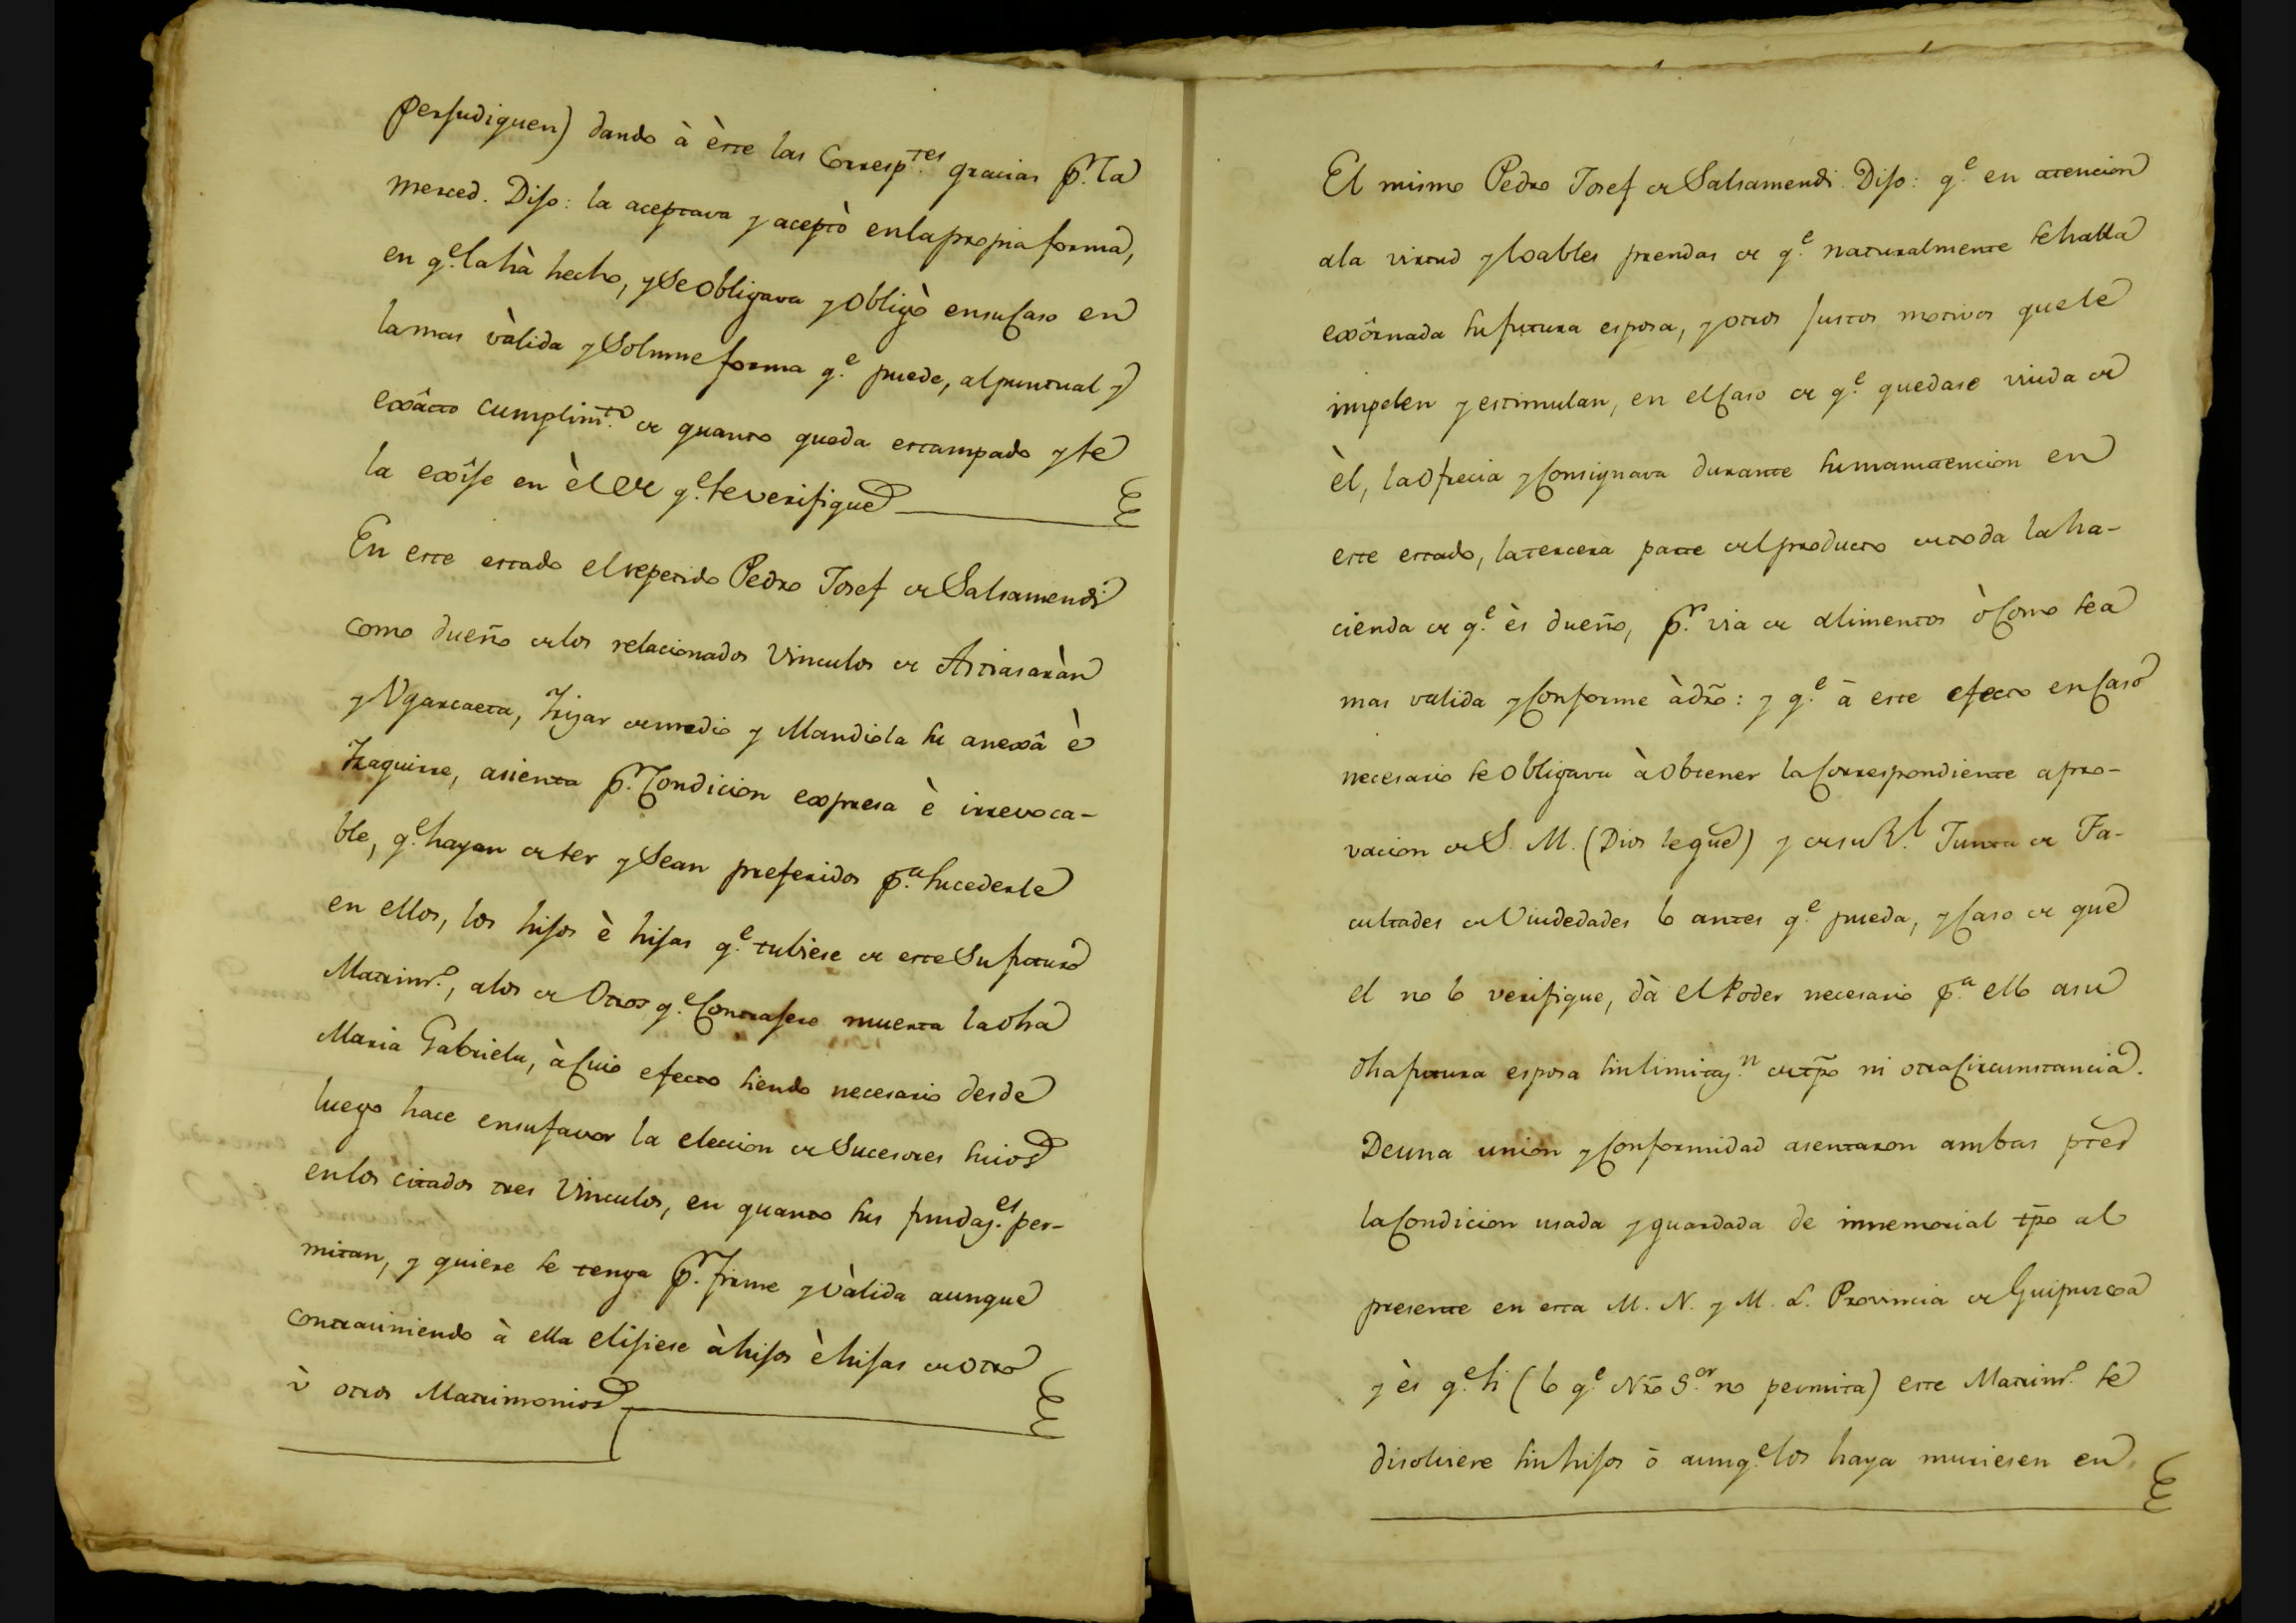 perjudiquen) dando à èste las Corresp.tes gracias p.r la
merced. Dijo: la aceptava y aceptò en la propia forma,
en q.e la hà hecho, y se obligava y obligò en su Caso en
la mas vàlida y Solemne forma q.e puede, al puntual y
exâcto cumplim.to de quanto queda estampado y se
la exîje en èl de q.e se verifique
En este estado el repetido Pedro Josef de Salsamendi
como dueño de los relacionados Vinculos de Astiasaràn
y Ugarcaeta, Irijar de medio y Mandiola su anexâ è
Izaguirre, asienta p.r Condicion expresa è irrevoca-
ble, q.e hayan de ser y Sean preferidos p.a sucederle
en ellos, los hijos è hijas q.e tubiese de este Su futuro
Matrim.o, a los de Otros q.e Contrajere muerta la dha
Maria Gabriela, à Cuio efecto siendo necesario desde
luego hace en su favor la eleccion de Sucesores suios
en los citados tres Vinculos, en quanto sus fundaz.es per-
mitan, y quiere se tenga p.r firme y vàlida aunque
contraviniendo à ella elijiese à hijos è hijas de otro
ù otros Matrimonios
El mismo Pedro Josef de Salsamendi Dijo: q.e en atencion
a la virtud y loables prendas de q.e naturalmente se halla
exôrnada su futura esposa, y otros justos motivos que le
impelen y estimulan, en el Caso de q.e quedase viuda de
èl, la Ofrecia y Consignava durante su manutencion en
este estado, la tercera parte del producto de toda la ha-
cienda de q.e ès dueño, p.r via de alimentos ò Como sea
mas valida y Conforme à dro: y q.e ā este efecto en Caso
necesario se Obligava à Obtener la Correspondiente apro-
vacion de S. M. (Dios le gue) y de su R.l Junta de Fa-
cultades de Viudedades lo antes q.e pueda, y Caso de que
el no lo verifique, dà el Poder necesario p.a ello a su
dha futura esposa sin limitaz.n de tpō ni otra Circunstancia.
De una union y Conformidad asentaron ambas ptes
la Condicion usada y guardada de inmemorial tpō al
presente en esta M. N. y M. L. Provincia de Guipuzcoa
y ès q.e si (lo q.e Nrō S.or no permita) este Matrim.o se
disolviere sin hijos ō aunq.e los haya muriesen en